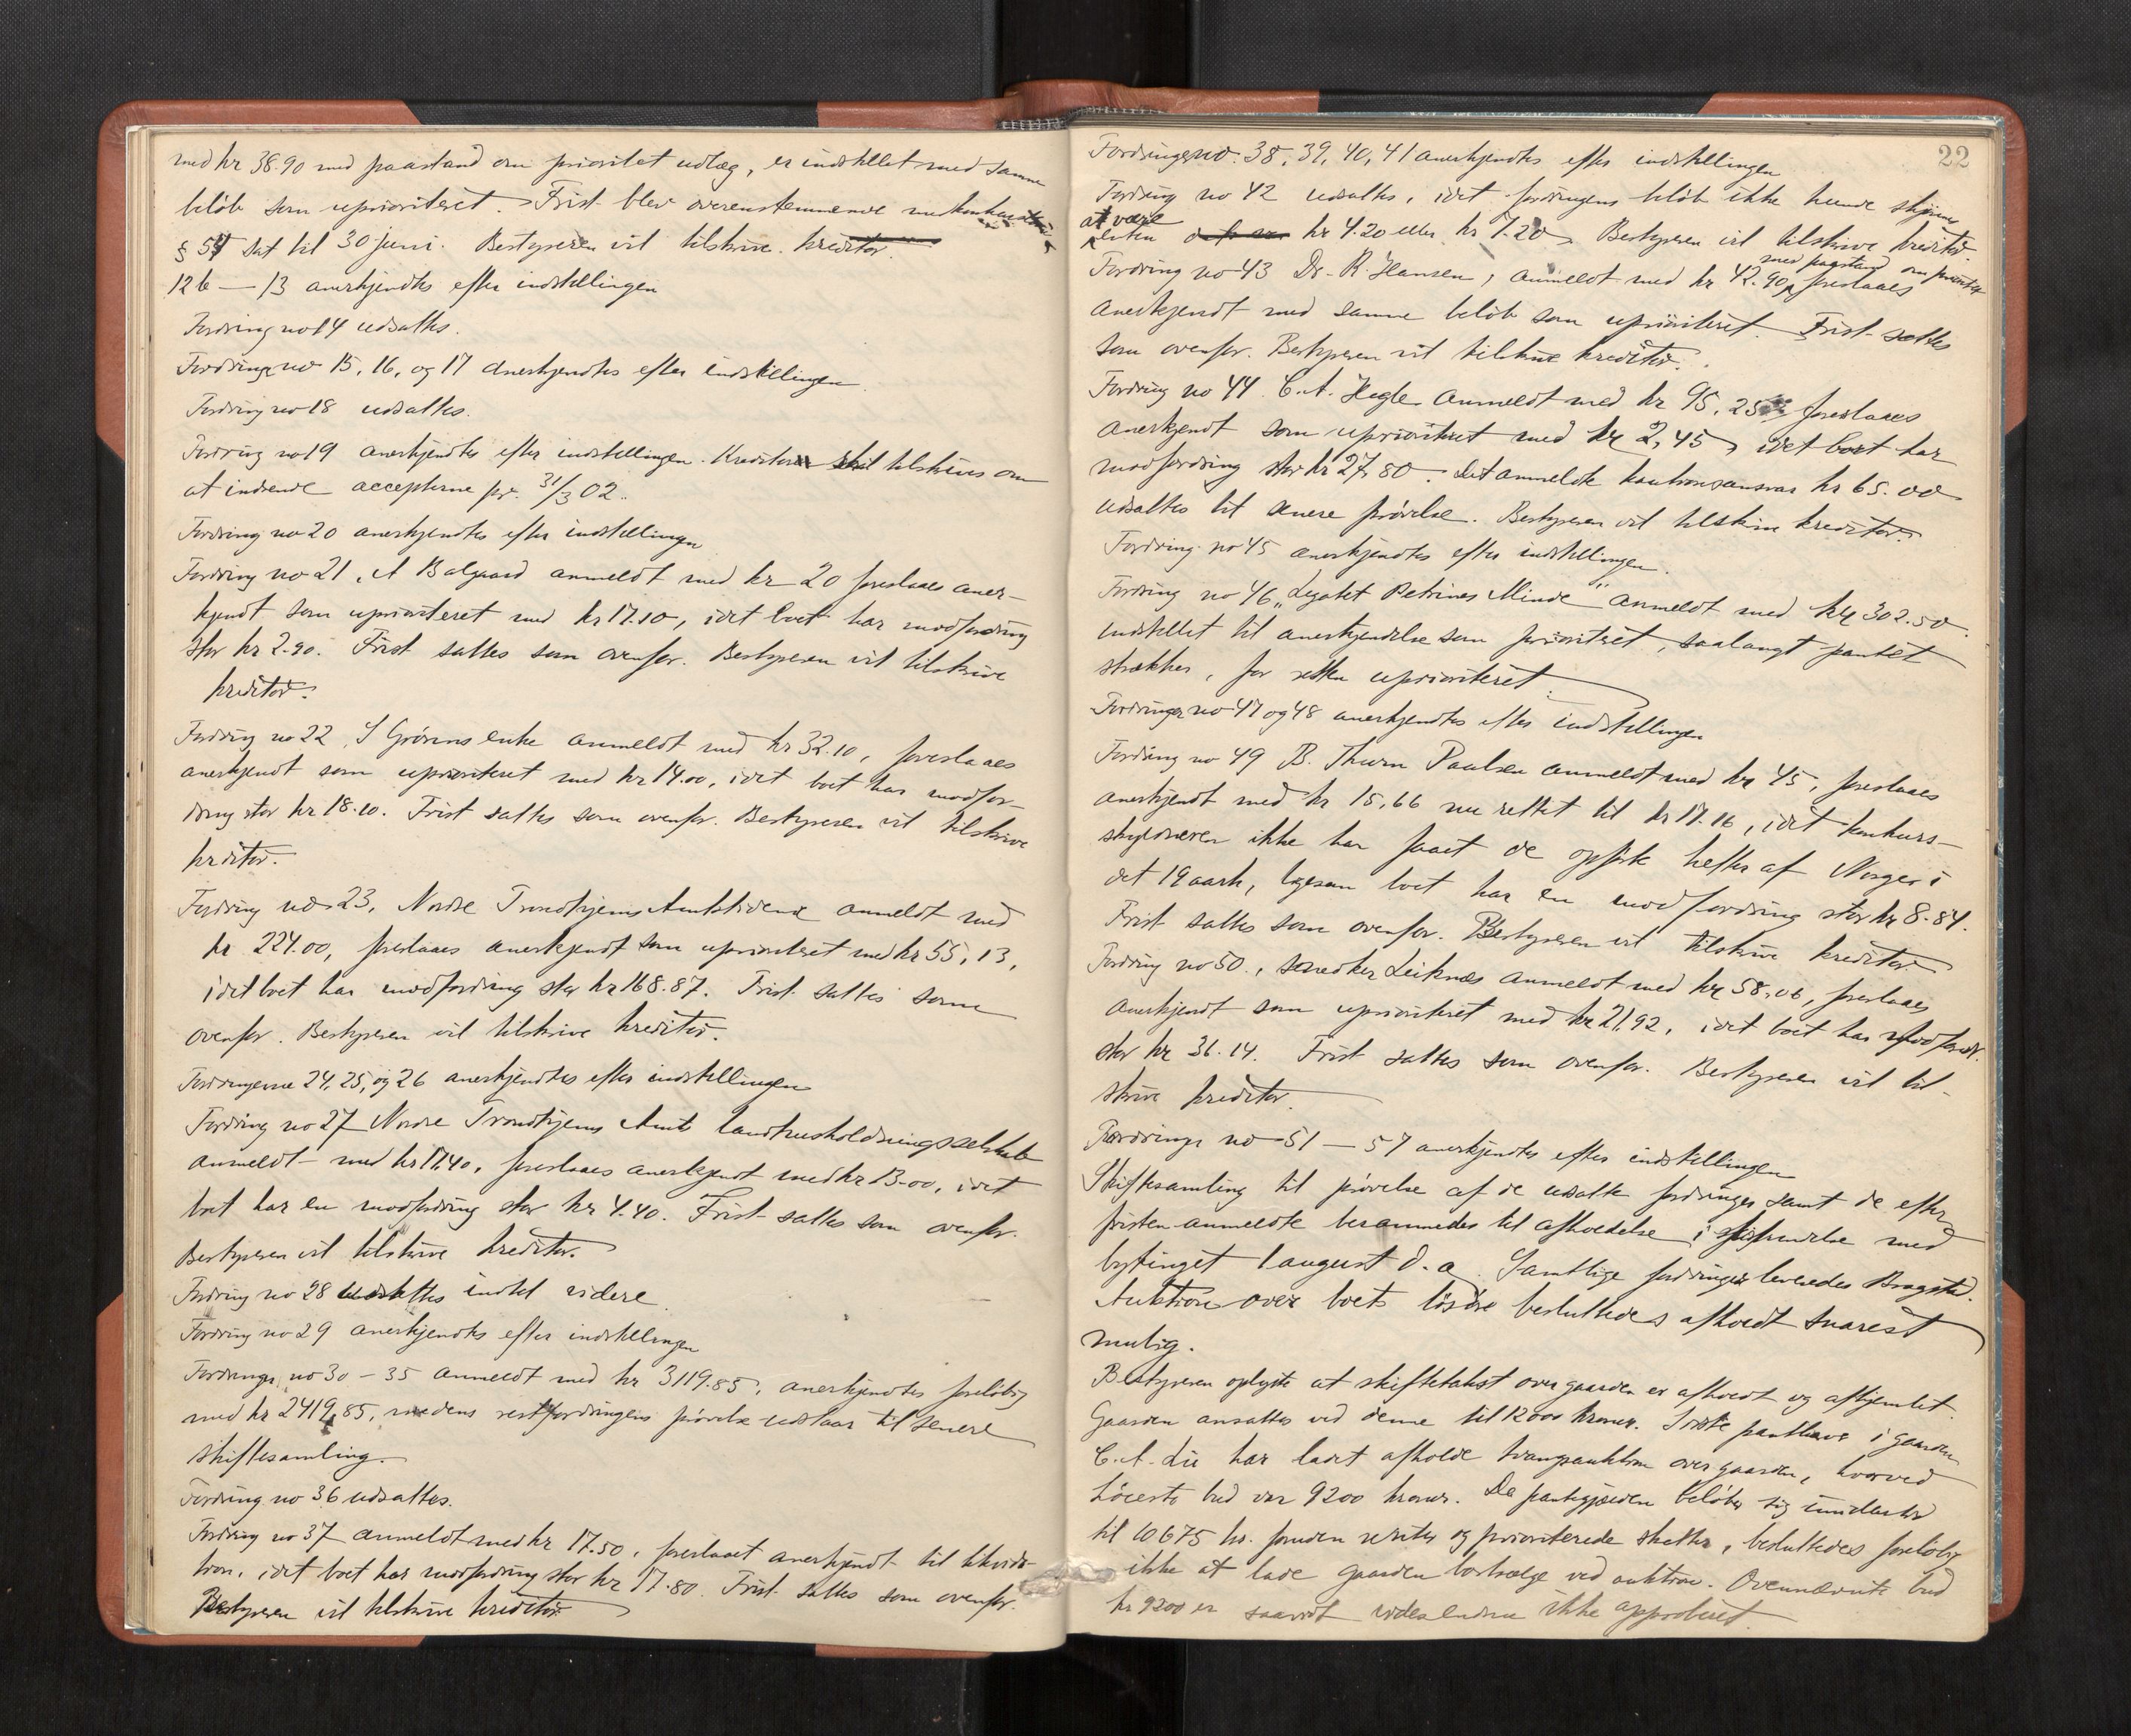 med kr 38.90 med paastand om prioritet udlæg, er indstillet med samme
beløb som uprioriteret. Frist blev overensstemmende med
§ 54 sat til 30 juni. Bestyreren vil tilskrive kreditor.
12b — 13 anerkjendtes efter indstillingen
Fordring no 14 udsattes.
Fordringer no 15, 16, og 17 anerkjendtes efter indstillingen.
Fordring no 18 udsattes.
Fordring no 19 anerkjendtes efter indstillingen. Kreditor skal tilskrives om
at indsende accepterne pr. 31/3 02.
Fordring no 20 anerkjendtes efter indstillingen
Fordring no 21, A Balgaard anmeldt med kr 20 foreslaaes aner-
kjendt som uprioriteret med kr 17.10, idet boet har modfordring
stor kr 2.90. Frist sattes som ovenfor. Bestyreren vil tilskrive
kreditor.
Fordring no 22, S Grønns enke anmeldt med kr 32.10, foreslaaes
anerkjendt som uprioriteret med kr 14.00, idet boet har modfor-
dring stor kr 18.10. Frist sattes som ovenfor. Bestyreren vil tilskrive
kreditor.
Fordring no 23, Nordre Trondhjems Amtstidende anmeldt med
kr 224.00, foreslaaes anerkjendt som uprioriteret med kr 55,13,
idet boet har modfordring stor kr 168.87. Frist sattes som
ovenfor. Bestyreren vil tilskrive kreditor.
Fordringerne 24, 25, og 26 anerkjendtes efter indstillingen
Fordring no 27 Nordre Trondhjems Amts Landhusholdningsselskab
anmeldt med kr 17,40, foreslaaes anerkjendt med kr 13.00, idet
boet har en modfordring stor kr 4.40. Frist sattes som ovenfor.
Bestyreren vil tilskrive kreditor.
Fordring no 28 udsættes indtil videre
Fordring no 29 anerkjendtes efter indstillingen
Fordringer no 30 – 35 anmeldt med kr 3119.85, anerkjendtes foreløbig
med kr 2419,85, medens restfordringens prøvelse udstaar til senere
skiftesamling.
Fordring no 36 udsattes.
Fordring no 37 anmeldt med kr 17.50, foreslaaet anerkjendt til likvida-
tion, idet boet har modfordring stor kr 17.80. Frist sattes som ovenfor.
Bestyreren vil tilskrive kreditor
22
Fordringer no. 38, 39, 40, 41 anerkjendtes efter indstillingen
Fordring no 42 udsattes, idet fordringens beløb ikke kunde skjønnes
at være
enten kr 4.20 eller kr 7.20. Bestyreren vil tilskrive kreditor.
med paastand om prioritet
Fordring no 43 Dr. R. Hansen, anmeldt med kr 42.90, foreslaaes
anerkjendt med samme beløb som uprioriteret. Frist sattes
som ovenfor. Bestyreren vil tilskrive kreditor.
Fordring no 44 C. A. Hegle anmeldt med kr 95,25 foreslaaes
anerkjendt som uprioriteret med kr 2,45, idet boet har
modfordring stor kr 27,80. Det anmeldte kautionsansvar kr 65.00
udsattes til senere prøvelse. Bestyreren vil tilskrive kreditor.
Fordring no 45 anerkjendtes efter indstillingen.
Fordring no 46 „Legatet Petrines Minde" anmeldt med kr 302.50.
indstillet til anerkjendelse som prioriteret, saalangt pantet
strækker, for resten uprioriteret.
Fordringer no 47 og 48 anerkjendtes efter indstillingen
Fordring no 49 B. Thurn Paulsen anmeldt med kr 45, foreslaaes
anerkjendt med kr 15,66 nu rettet til kr 17.16, idet konkurs-
skyldneren ikke har faaet de opførte hefter af Norge i
det 19 aarh, ligesom boet har en modfordring stor kr 8.84.
Frist sattes som ovenfor. Bestyreren vil tilskrive kreditor
Fordring no 50, snedker Leiknes anmeldt med kr 58,06, foreslaaes
anerkjendt som uprioriteret med kr 21,92, idet boet har modfordr.
stor kr 36.14. Frist sattes som ovenfor. Bestyreren vil til-
skrive kreditor.
Fordringer no 51 — 57 anerkjendtes efter indstillingen
Skiftesamling til prøvelse af de udsatte fordringer samt de efter
fristen anmeldte berammedes til afholdelse i forbindelse med
bytinget 1 august d. a. Samtlige fordringer leveredes Bragstad.
Auktion over boets løsøre besluttedes afholdt snarest
mulig.
Bestyreren oplyste at skiftetakst over gaarden er afholdt og afhjemlet.
Gaarden ansattes ved denne til 12000 kroner. Første panthaver i gaarden
C. A. Lie har ladet afholde tvangsauktion over gaarden, hvorved
høieste bud var 9200 kroner. Da pantegjælden beløber sig imidlertid
til 10675 kr. foruden renter og prioriterede skatter, besluttedes foreløbig
ikke at lade gaarden bortsælge ved auktion. Ovennævnte bud
kr 9200 er saavidt vides endnu ikke approberet.